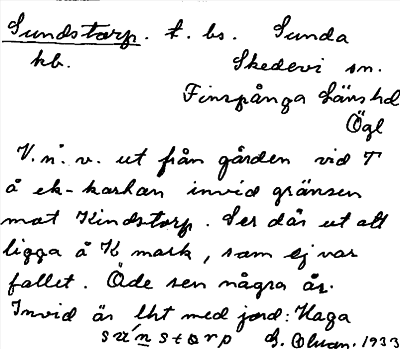 Sundstorp. t. bs. Sunda
kb. Skedevi sn.
Finspånga länshd
Ögl
V. n. v. ut från gården vid T
å ek-kartan invid gränsen
mot Kindstorp. Ser där ut att
ligga å K mark, som ej var
fallet. Öde sen några år.
Invid är lht med jord: Haga
G. Olsson. 1933